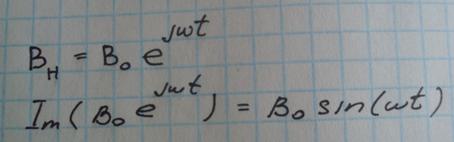 B_H = B_0 e^{jωt}
Im(B_0 e^{jωt}) = B_0 sin(ωt)